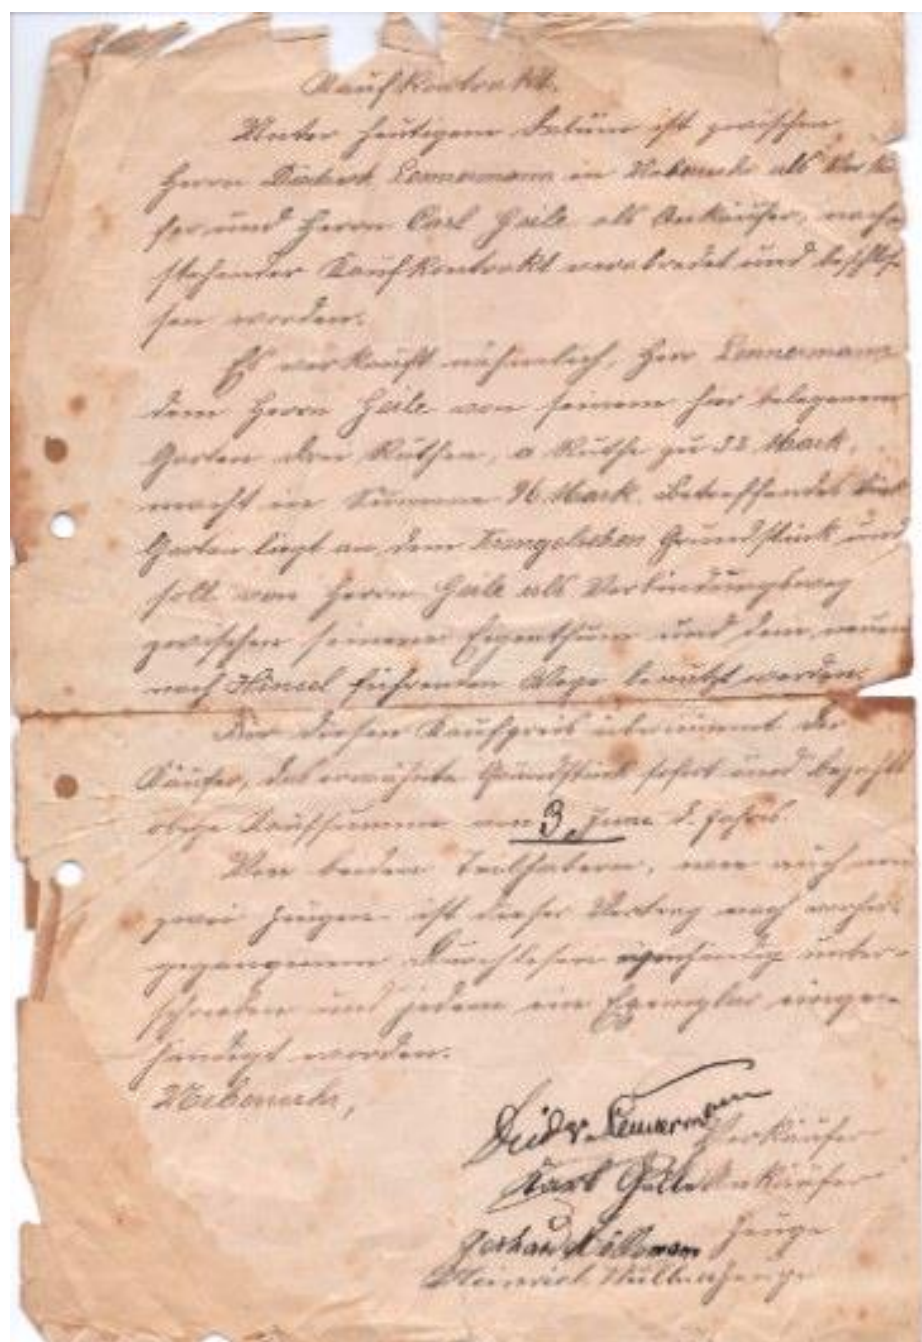 Kaufkontrakt.
Unter heutigem Datum ist zwischen
Herrn Diederich Lennermann in als Verkäu
fer und Herrn Carl Heile als Ankäufer, nach
stehender Kaufkontrakt verabredet und beschlos
sen worden.
Es verkauft nähmlich, Herr Lennermann
dem Herrn Heile von seinem hier belegenem
Garten drei Ruthen, a Ruthe zu 32 Mark,
macht in Summa 96 Mark. Betreffendes
Garten liegt an dem Grundstück und
soll von Herrn Heile als Verbindungsweg
zwischen seinem Eigenthum und dem neuen
nach führenden Wege benutzt werden.
Für diesen Kaufpreis übernimmt der
Käufer, das erwähnte Grundstück sofort und bezahlt
obige Kaufsumme am 3. Juni d. Jahres.
Von beiden Theilhabern, wie auch von
zwei Zeugen ist dieser Vertrag nach vorher
gegangenem Durchlesen eigenhändig unter-
schrieben und jedem ein Exemplar einge-
händigt worden.
Lennermann Verkäufer
Karl Heile Ankäufer
Gerhard Zeuge
Heinrich Zeuge